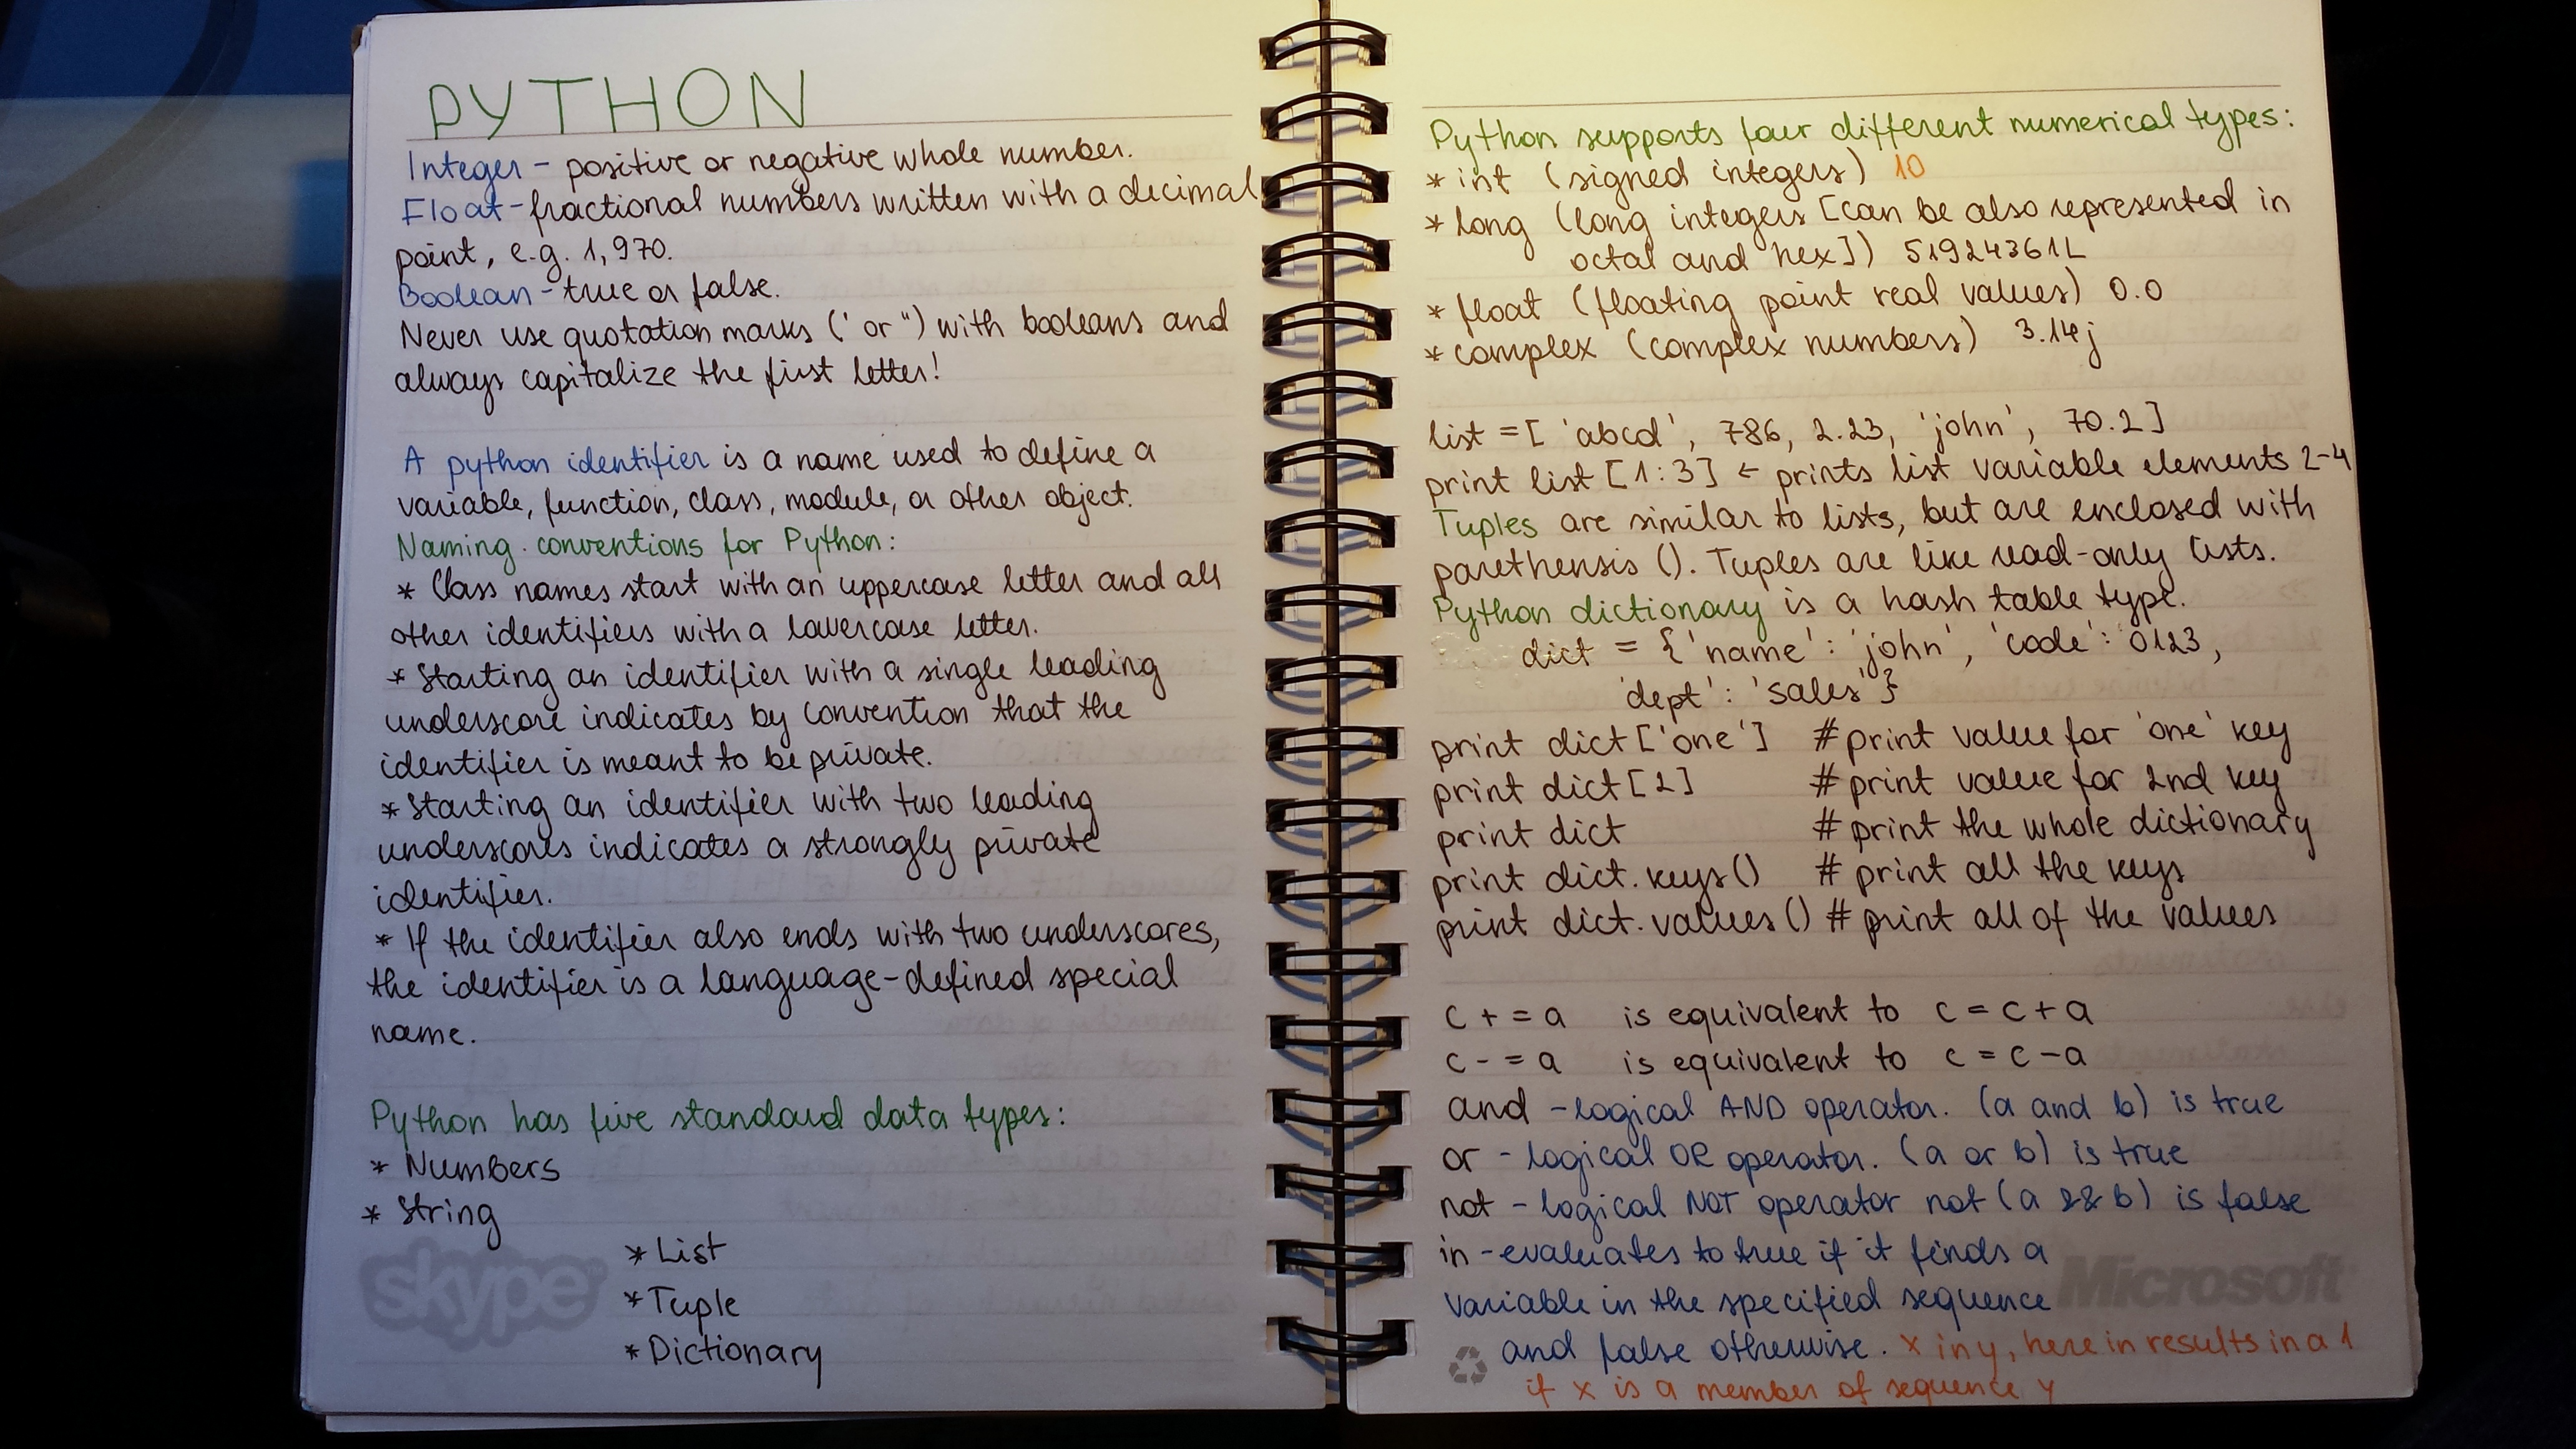 PYTHON
Integer - positive or negative whole number.
Float - fractional numbers written with a decimal
point, e.g. 1,970.
Boolean - true or false.
Never use quotation marks (' or ") with booleans and
always capitalize the first letter!
A python identifier is a name used to define a
variable, function, class, module, or other object.
Naming conventions for Python:
* Class names start with an uppercase letter and all
other identifiers with a lowercase letter.
* Starting an identifier with a single leading
underscore indicates by convention that the
identifier is meant to be private.
* Starting an identifier with two leading
underscores indicates a strongly private
identifier.
* If the identifier also ends with two underscores,
the identifier is a language-defined special
name.
Python has five standard data types:
* Numbers
* String
* List
* Tuple
* Dictionary
skype
Python supports four different numerical types:
* int (signed integers) 10
* long (long integers [can be also represented in
octal and hex]) 51924361L
* float (floating point real values) 0.0
* complex (complex numbers) 3.14j
list = [ 'abcd', 786, 2.23, 'john', 70.2 ]
print list [1:3] ← prints list variable elements 2-4
Tuples are similar to lists, but are enclosed with
parethensis (). Tuples are like read-only lists.
Python dictionary is a hash table type.
dict = {'name': 'john', 'code': 0123,
'dept': 'sales'}
print dict ['one'] # print value for 'one' key
print dict [2] # print value for 2nd key
print dict # print the whole dictionary
print dict.keys() # print all the keys
print dict.values() # print all of the values
c + = a is equivalent to c = c + a
c - = a is equivalent to c = c - a
and - logical AND operator. (a and b) is true
or - logical OR operator. (a or b) is true
not - logical NOT operator not (a && b) is false
in - evaluates to true if it finds a
variable in the specified sequence
and false otherwise. x in y, here in results in a 1
if x is a member of sequence y
Microsoft